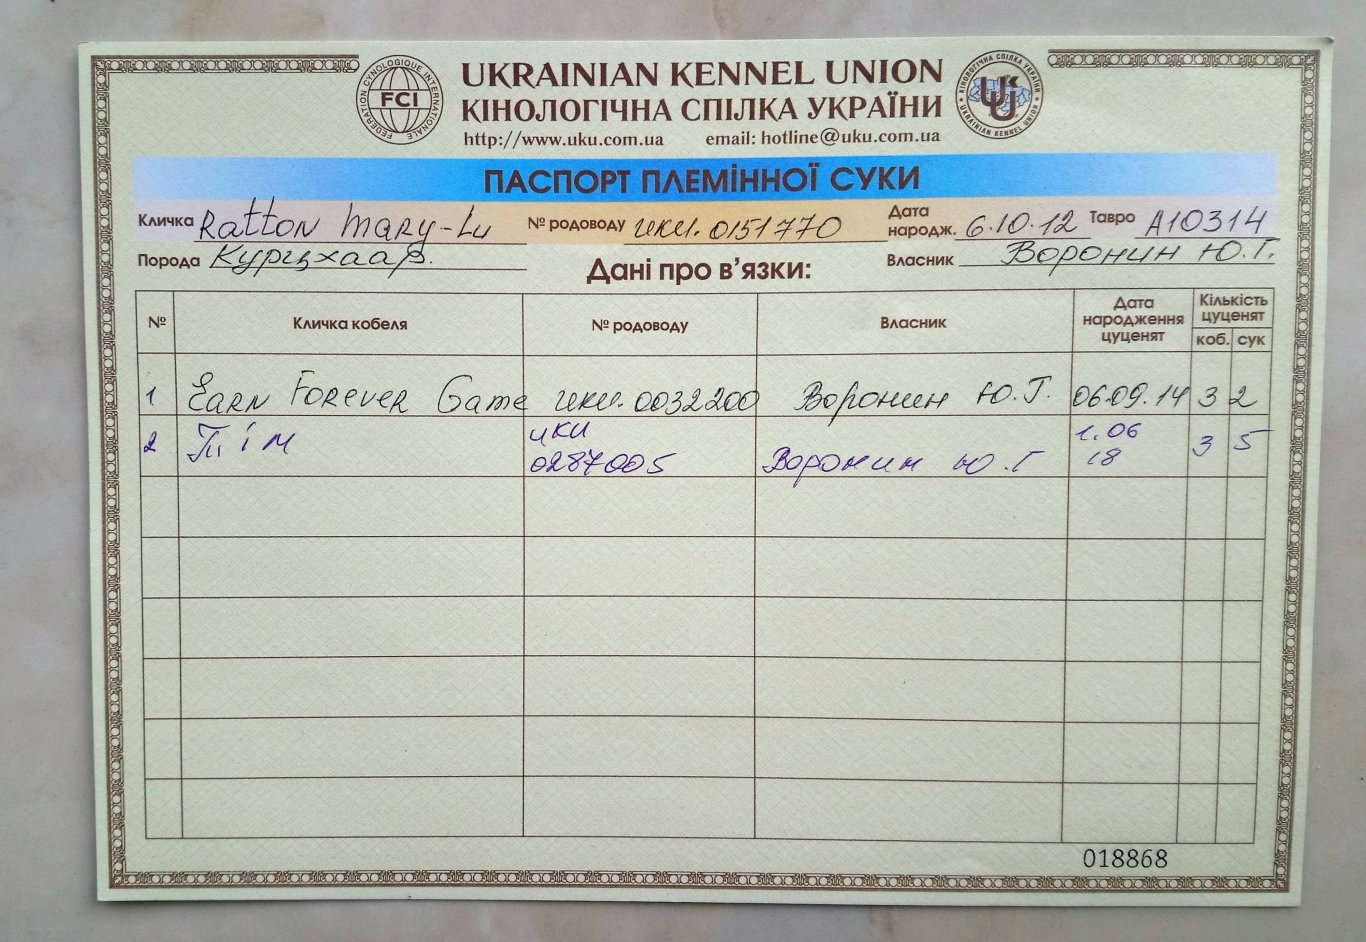 FEDERATION CYNOLOGIQUE INTERNATIONALE
FCI
UKRAINIAN KENNEL UNION
КІНОЛОГІЧНА СПІЛКА УКРАЇНИ
http://www.uku.com.ua email: hotline@uku.com.ua
КІНОЛОГІЧНА СПІЛКА УКРАЇНИ
UKU
UKRAINIAN KENNEL UNION
ПАСПОРТ ПЛЕМІННОЇ СУКИ
Кличка Ratton Mary-Lu № родоводу UKU.0151770 Дата народж. 6.10.12 Тавро A10314
Порода Курцхаар. Дані про в'язки: Власник Воронин Ю.Г.
№ Кличка кобеля № родоводу Власник Дата народження цуценят Кількість цуценят
коб. сук
1 Earn Forever Game UKU.0032200 Воронин Ю.Г. 06.09.14 3 2
2 Тім UKU 0287005 Воронин Ю.Г 1.06 18 3 5
018868